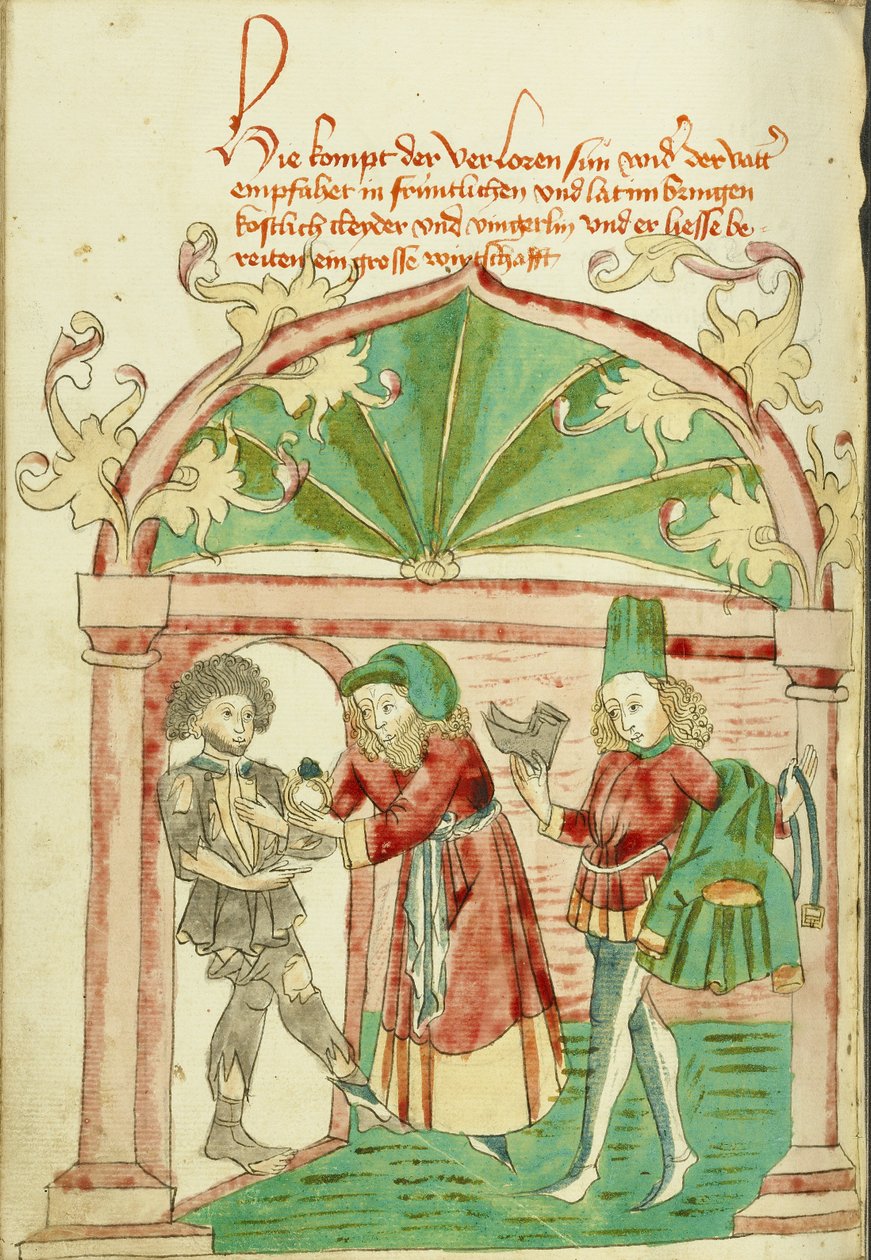 Hie kompt der verloren sun wid der vatt
empfahet in fruntlichen vnd lat im bringen
kostlich cleyder vnd vingerlin vnd er hesse be-
reiten ein grosse wirtschafft